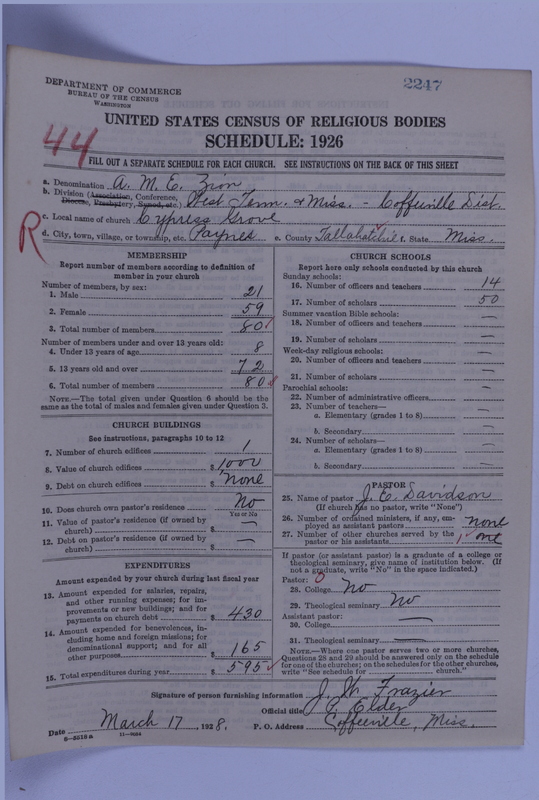 2247
DEPARTMENT OF COMMERCE
BUREAU OF THE CENSUS
WASHINGTON
UNITED STATES CENSUS OF RELIGIOUS BODIES
SCHEDULE: 1926
44
FILL OUT A SEPARATE SCHEDULE FOR EACH CHURCH. SEE INSTRUCTIONS ON THE BACK OF THIS SHEET
a. Denomination A. M. E. Zion
b. Division (Association, Conference, Diocese, Presbytery, Synod, etc.) West Tenn. & Miss. - Coffeeville Dist.
c. Local name of church Cypress Grove
R
d. City, town, village, or township, etc. Paynes e. County Tallahatchie f. State Miss.
MEMBERSHIP
Report number of members according to definition of member in your church
Number of members, by sex:
1. Male 21
2. Female 59
3. Total number of members 80
Number of members under and over 13 years old:
4. Under 13 years of age 8
5. 13 years old and over 72
6. Total number of members 80
NOTE.—The total given under Question 6 should be the same as the total of males and females given under Question 3.
CHURCH BUILDINGS
See instructions, paragraphs 10 to 12
7. Number of church edifices 1
8. Value of church edifices $ 1000
9. Debt on church edifices $ None
10. Does church own pastor's residence? No
Yes or No
11. Value of pastor's residence (if owned by church) $ —
12. Debt on pastor's residence (if owned by church) $ —
EXPENDITURES
Amount expended by church during last fiscal year
13. Amount expended for salaries, repairs, and other running expenses; for improvements or new buildings; and for payments on church debt $ 430
14. Amount expended for benevolences, including home and foreign missions; for denominational support; and for all other purposes $ 165
15. Total expenditures during year $ 595
CHURCH SCHOOLS
Report here only schools conducted by this church
Sunday schools:
16. Number of officers and teachers 14
17. Number of scholars 50
Summer vacation Bible schools:
18. Number of officers and teachers —
19. Number of scholars —
Week-day religious schools:
20. Number of officers and teachers —
21. Number of scholars —
Parochial schools:
22. Number of administrative officers —
23. Number of teachers—
a. Elementary (grades 1 to 8) —
b. Secondary —
24. Number of scholars—
a. Elementary (grades 1 to 8) —
b. Secondary —
PASTOR
25. Name of pastor J. E. Davidson
(If church has no pastor, write "None")
26. Number of ordained ministers, if any, employed as assistant pastors none
27. Number of other churches served by the pastor or his assistants 1 one
If pastor (or assistant pastor) is a graduate of a college or theological seminary, give name of institution below. (If not a graduate, write "No" in the space indicated.)
Pastor: 0
28. College No
29. Theological seminary No
Assistant pastor:
30. College —
31. Theological seminary —
NOTE.—Where one pastor serves two or more churches, Questions 28 and 29 should be answered only on the schedule for one of the churches; on the schedules for the other churches, write "See schedule for church."
Signature of person furnishing information J. W. Frazier
Official title P. Elder
Date March 17, 1928. P. O. Address Coffeeville, Miss.